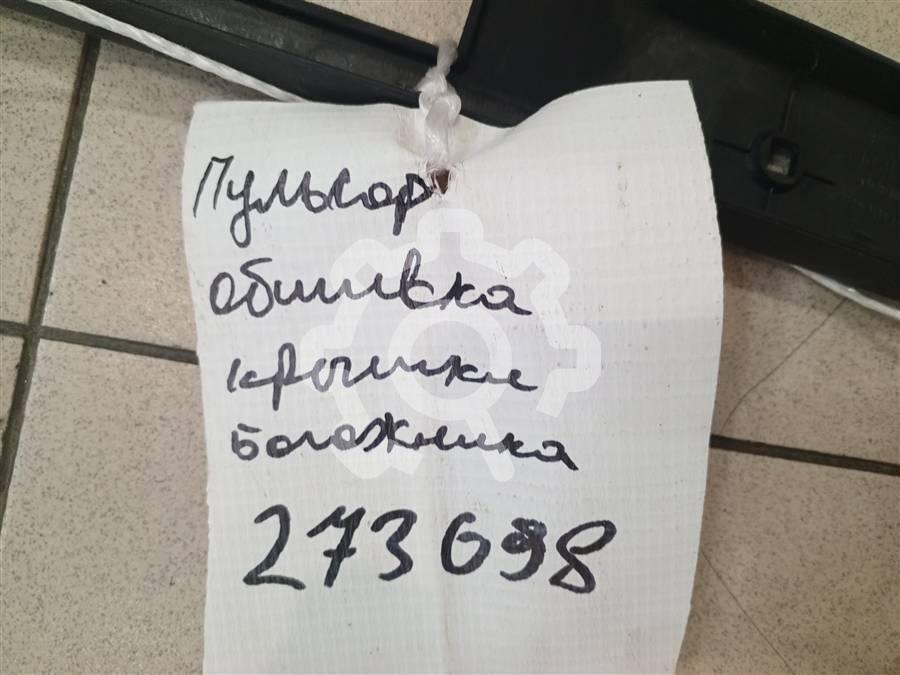 Пульсар
обшивка
крышки
богожника
273698